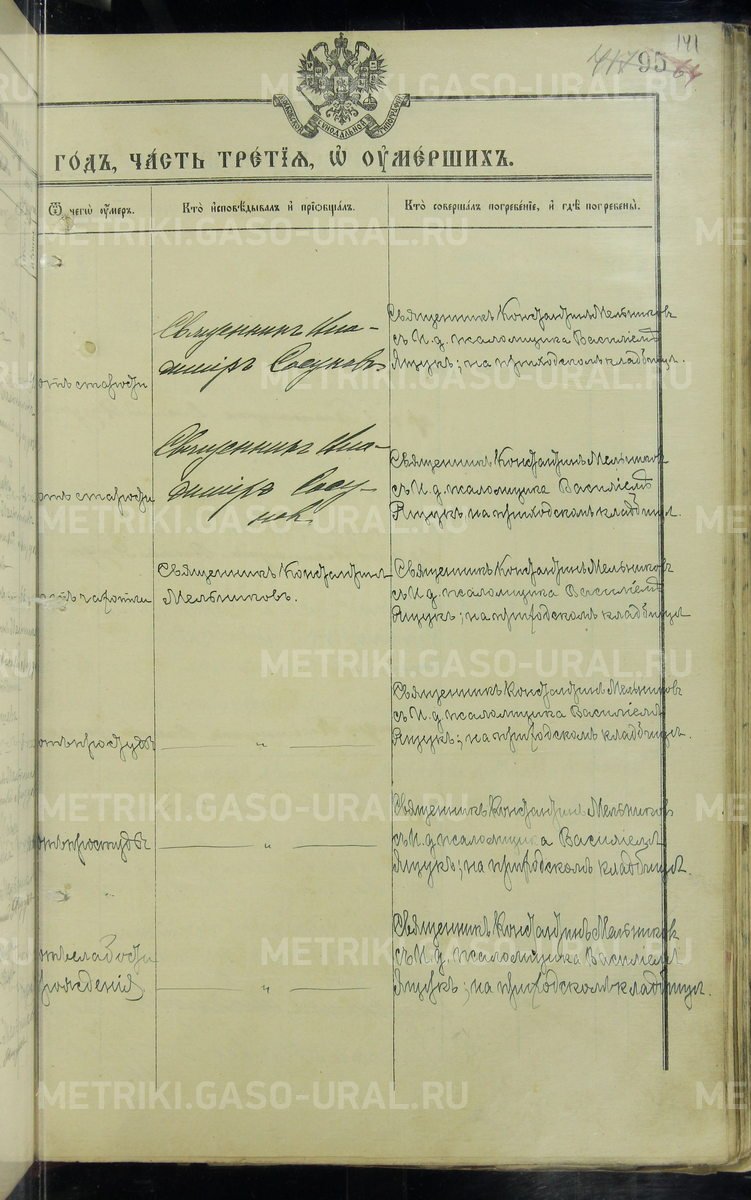 141
417 95 64
СѴНОДАЛЬНОЙ
ГОДЪ, ЧАСТЬ ТРЕТІЯ, Ѽ ОУМЕРШИХЪ.
Ѿ чегѡ оумеръ.
Кто исповѣдывалъ и пріобщалъ.
Кто совершалъ погребеніе, и гдѣ погребены.
отъ старости
Священникъ
Сосуновъ
Священникъ Константинъ Мельниковъ
съ И. д. псаломщика Василіемъ
Ящукъ; на приходскомъ кладбищѣ.
отъ старости
Священникъ
Сосу-
новъ
Священникъ Константинъ Мельниковъ
съ И. д. псаломщика Василіемъ
Ящукъ на приходскомъ кладбищѣ.
отъ чахотки
Священникъ Константинъ
Мельниковъ.
Священникъ Константинъ Мельниковъ
съ И. д. псаломщика Василіемъ
Ящукъ; на приходскомъ кладбищѣ
отъ простудѣ
— „ —
Священникъ Константинъ Мельниковъ
съ И. д. псаломщика Василіемъ
Ящукъ; на приходскомъ кладбищѣ.
отъ простудѣ
— „ —
Священникъ Константинъ Мельниковъ
съ И. д. псаломщика Василіемъ
Ящукъ; на приходскомъ кладбищѣ.
отъ слабости
рожденія
— „ —
Священникъ Константинъ Мельниковъ
съ И. д. псаломщика Василіемъ
Ящукъ; на приходскомъ кладбищѣ.
METRIKI.GASO-URAL.RU